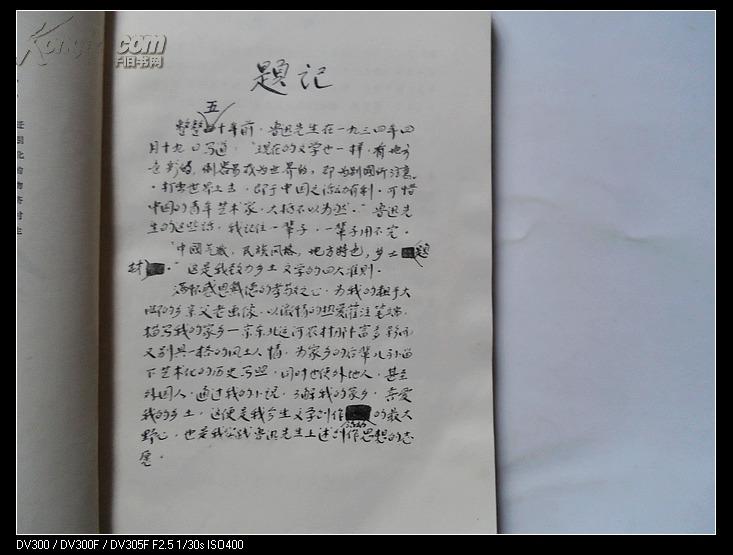 kongfz.com
孔夫子旧书网
题记
五
整整四十年前，鲁迅先生在一九三四年四
月十九日写道：“现在的文学也一样，有地方
色彩的，倒容易成为世界的，即为别国所注意
。打出世界上去，即于中国之活动有利。可惜
中国的青年艺术家，大抵不以为然。”鲁迅先
生的这些话，我记住一辈子，一辈子用不完。
“中国气派，民族风格，地方特色，乡土题
材。”这是我致力乡土文学的四大准则。
满怀感恩戴德的孝敬之心，为我的粗手大
脚的乡亲父老画像，以激情的热爱灌注笔端，
描写我的家乡—京东北运河农村的丰富多彩而
又别具一格的风土人情，为家乡的后辈儿孙留
下艺术化的历史写照，同时也使外地人，甚至
外国人，通过我的小说，了解我的家乡，喜爱
我的乡土，这便是我今生文学创作的最大
野心，也是我实践鲁迅先生上述创作思想的志
愿。
DV300 / DV300F / DV305F F2.5 1/30s ISO400